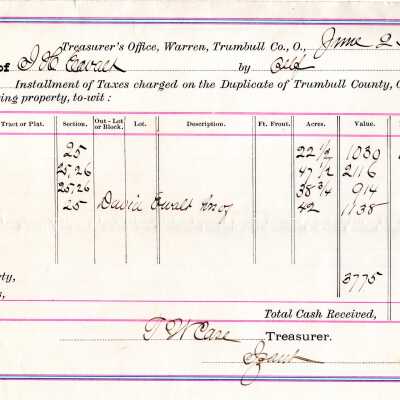 Treasurer's Office, Warren, Trumbull Co., O., June 2
of J H Ewalt by
Installment of Taxes charged on the Duplicate of Trumbull County,
ing property, to-wit:
Tract or Plat. Section. Out-Lot or Block. Lot. Description. Ft. Front. Acres. Value.
25 22 1/2 1030
25,26 47 1/2 2116
25,26 38 3/4 914
25 David Ewalt 42 1138
rty, 3775
s,
Total Cash Received,
T W Case Treasurer.